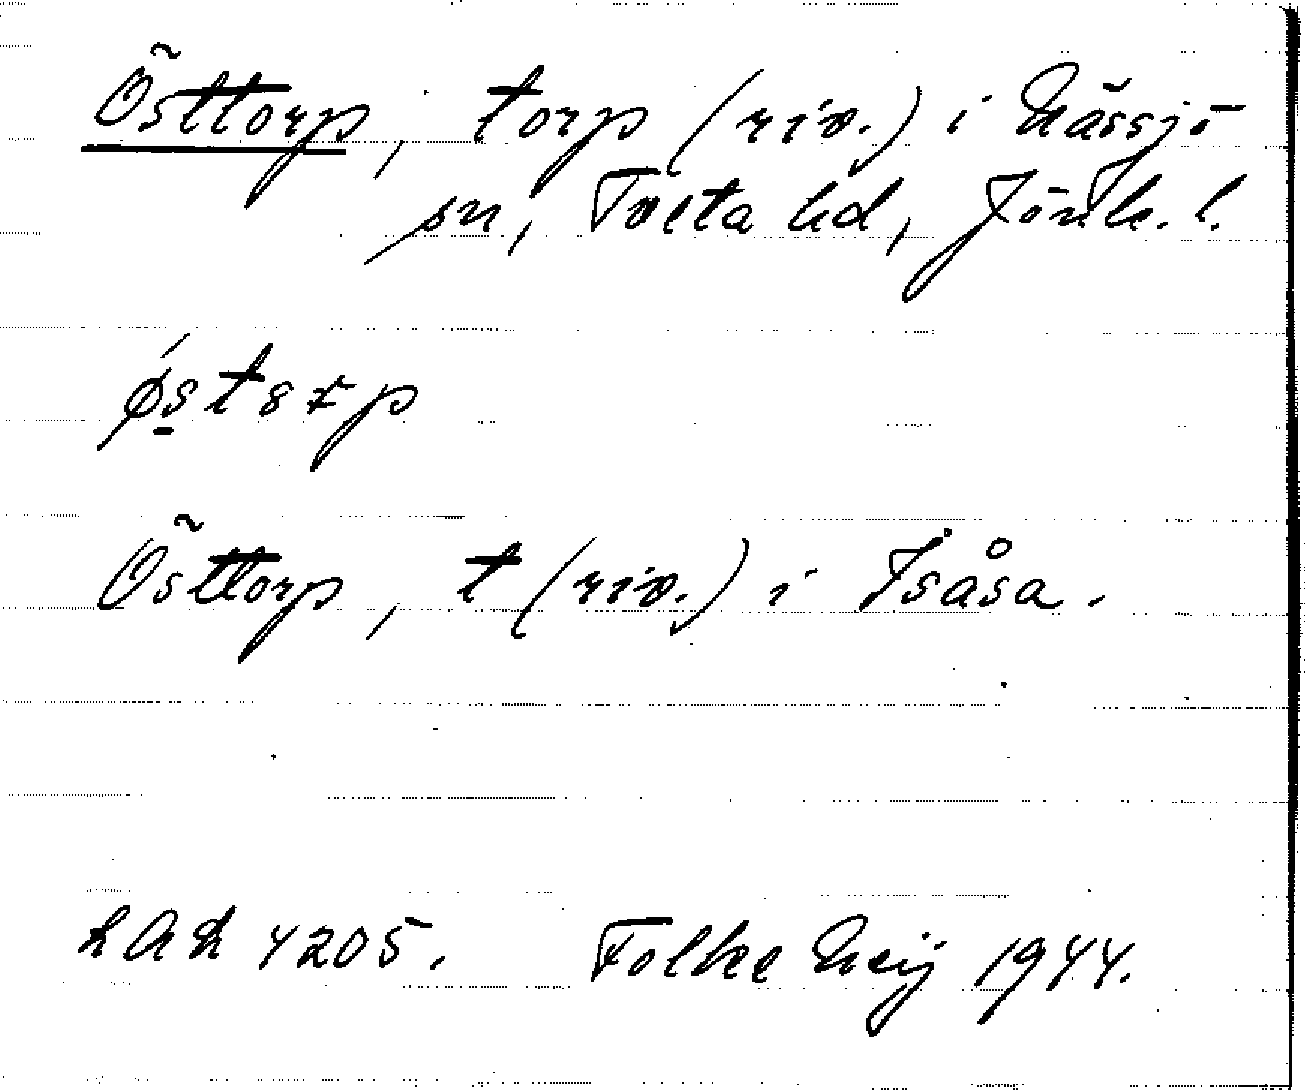 Östtorp, torp (riv.) i Nässjö
sn, Tveta hd, Jönk. l.
Östtorp, t (riv.) i Isåsa.
4205. Folke Neij 1944.